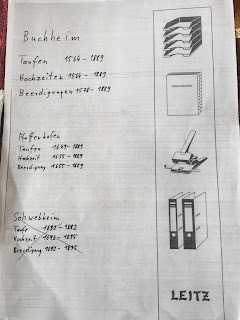 Buchheim
Taufen 1564-1889
Hochzeiten 1584-1889
Beerdigungen 1578-1889
Pfaffenhofen
Taufen 1649-1889
Hochzeit 1655-1889
Beerdigung 1655-1889
Schwebheim
Taufe 1692-1882
Hochzeit 1693-1895
Beerdigung 1692-1895
LEITZ